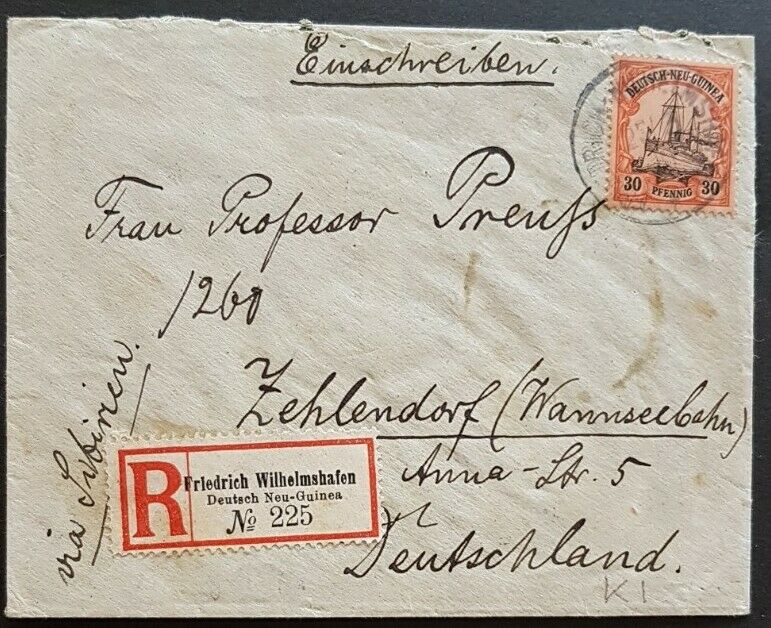 Einschreiben.
DEUTSCH-NEU-GUINEA
30 PFENNIG 30
Frau Professor Preuß
1260
Zehlendorf (Wannseebahn)
Anna-Str. 5
Deutschland.
via Sibirien.
R
Friedrich Wilhelmshafen
Deutsch Neu-Guinea
No 225
K1